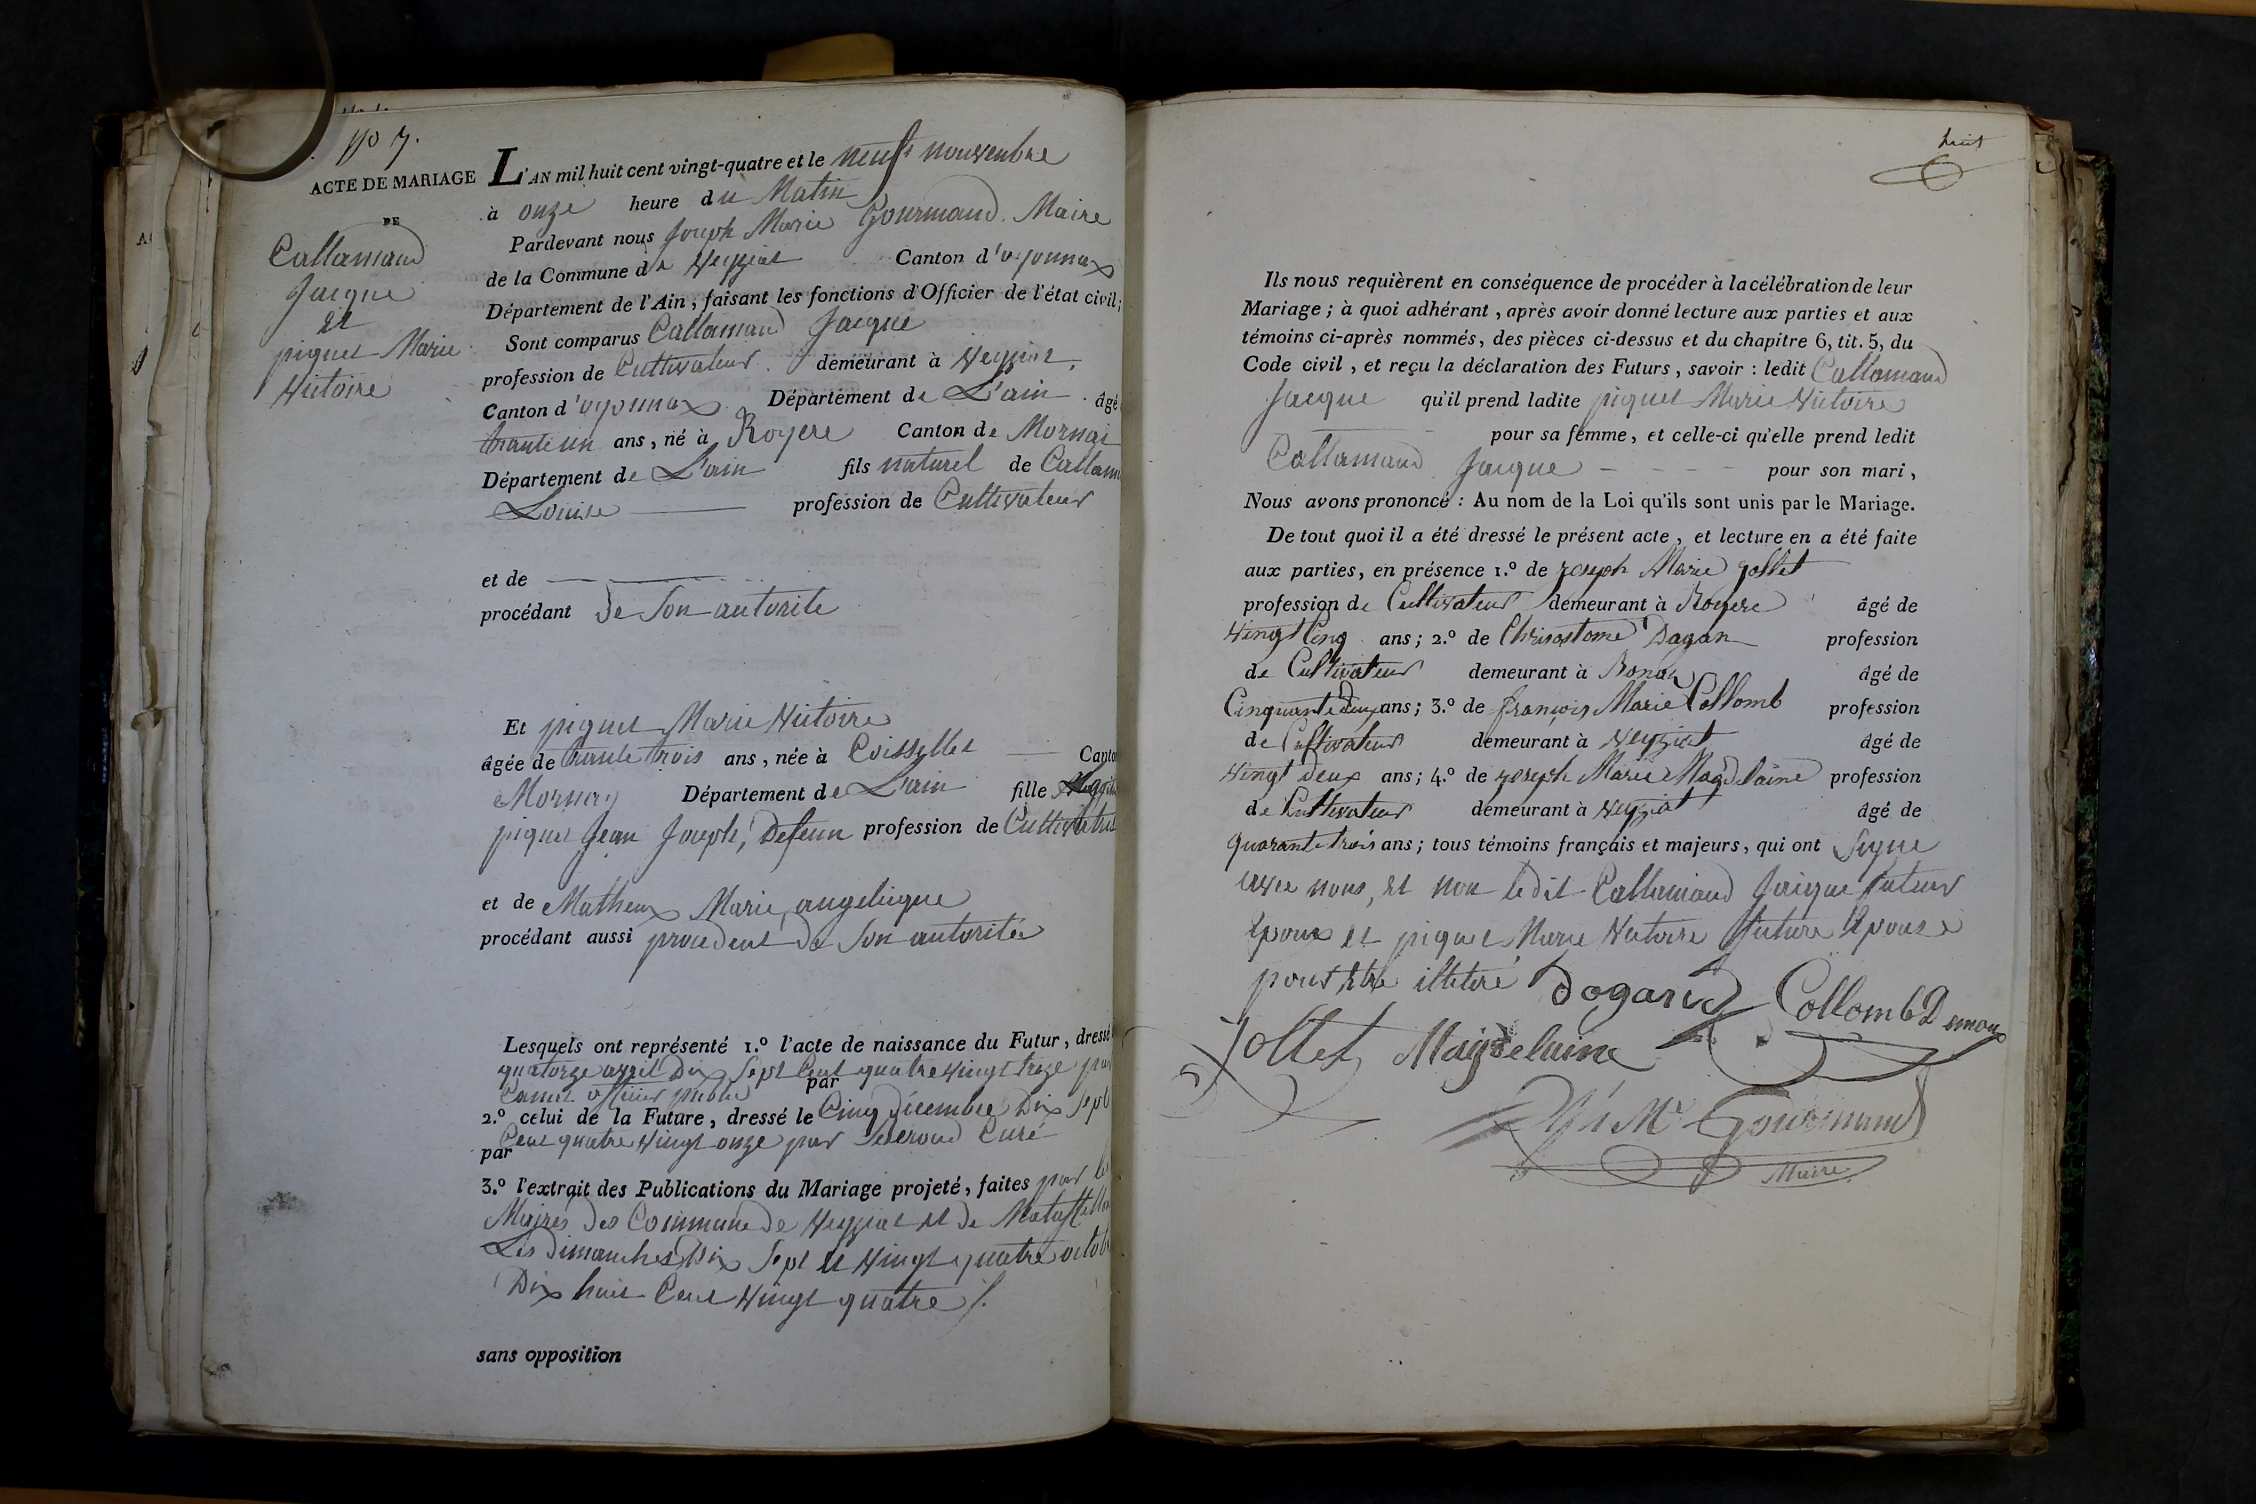 No 7.
ACTE DE MARIAGE
DE
Callamand
Jacque
et
piquet Marie
Victoire
L'AN mil huit cent vingt-quatre et le neuf novembre
à onze heure du Matin
Pardevant nous Joseph Marie Gourmand Maire
de la Commune de Veyziat Canton d'oyonnax
Département de l'Ain, faisant les fonctions d'Officier de l'état civil;
Sont comparus Callamand Jacque
profession de Cultivateur demeurant à Veyziat
Canton d'oyonnax Département de L'ain âgé
trante un ans, né à Royere Canton de Mornai
Département de L'ain fils naturel de Callam
Louise profession de Cultivateur
et de
procédant de son autorite
Et piquet Marie Victoire
âgée de trante trois ans, née à Coissellet Canto
Mornay Département de L'ain fille
piquet Jean Joseph, defeun profession de Cultivateur
et de Matheux Marie angelique
procédant aussi procedent de son autorité
Lesquels ont représenté 1.º l'acte de naissance du Futur, dressé
quatorze avril Dix Sept Cent quatre vingt treize par
officier public par
2.º celui de la Future, dressé le Cinq décembre Dix Sept
Cent quatre vingt onze par Curé
par
3.º l'extrait des Publications du Mariage projeté, faites par les
Maires des Commune de Veyziat et de Matafellon
Les dimanches Dix Sept et vingt quatre octob
Dix huit Cent vingt quatre /.
sans opposition
huit
Ils nous requièrent en conséquence de procéder à la célébration de leur
Mariage; à quoi adhérant, après avoir donné lecture aux parties et aux
témoins ci-après nommés, des pièces ci-dessus et du chapitre 6, tit. 5, du
Code civil, et reçu la déclaration des Futurs, savoir : ledit Callamand
Jacque qu'il prend ladite piquet Marie Victoire
pour sa femme, et celle-ci qu'elle prend ledit
Callamand Jacque - - - - pour son mari,
Nous avons prononcé : Au nom de la Loi qu'ils sont unis par le Mariage.
De tout quoi il a été dressé le présent acte, et lecture en a été faite
aux parties, en présence 1.º de joseph Marie jollet
profession de Cultivateur demeurant à Royere âgé de
vingt Cinq ans; 2.º de Chrisostome Dagan profession
de Cultivateur demeurant à Bonaz âgé de
Cinquante deux ans; 3.º de françois Marie Collomb profession
de Cultivateur demeurant à Veyziat âgé de
vingt deux ans; 4.º de joseph Marie Magdelaine profession
de Cultivateur demeurant à Veyziat âgé de
quarante trois ans; tous témoins français et majeurs, qui ont Signe
avec nous, et non le dit Callamand Jacque futur
Epoux et piquet Marie Victoire future Epouse
pour Etre illetéré
Dogand Collomb
jollet Magdelaine
Gourmand
Maire